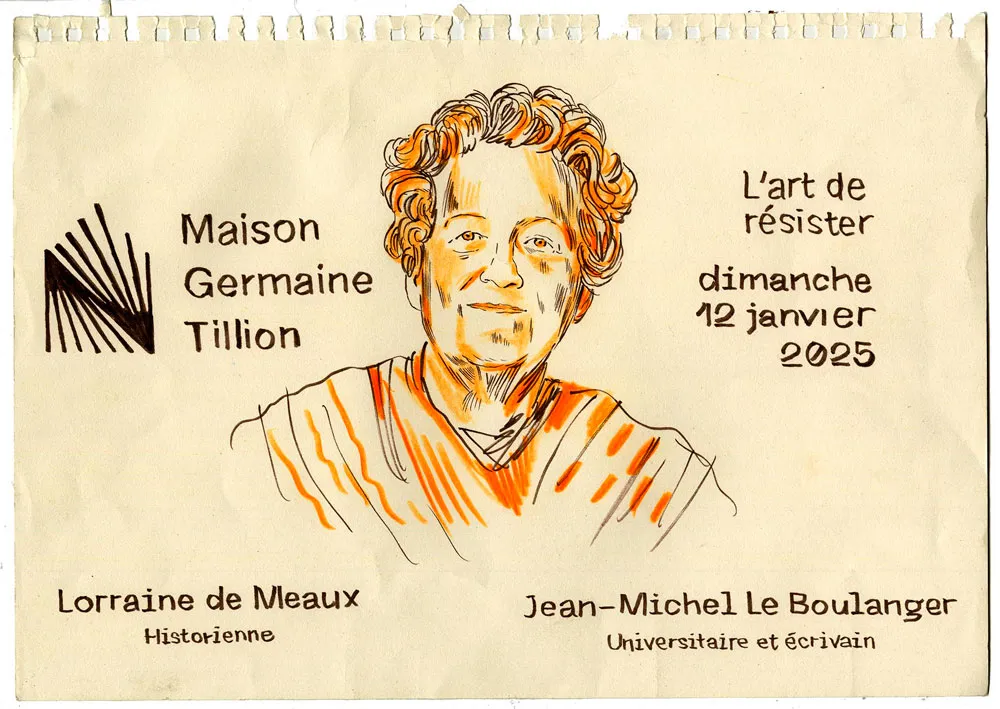 Maison
Germaine
Tillion
L'art de
résister
dimanche
12 janvier
2025
Lorraine de Meaux
Historienne
Jean-Michel Le Boulanger
Universitaire et écrivain